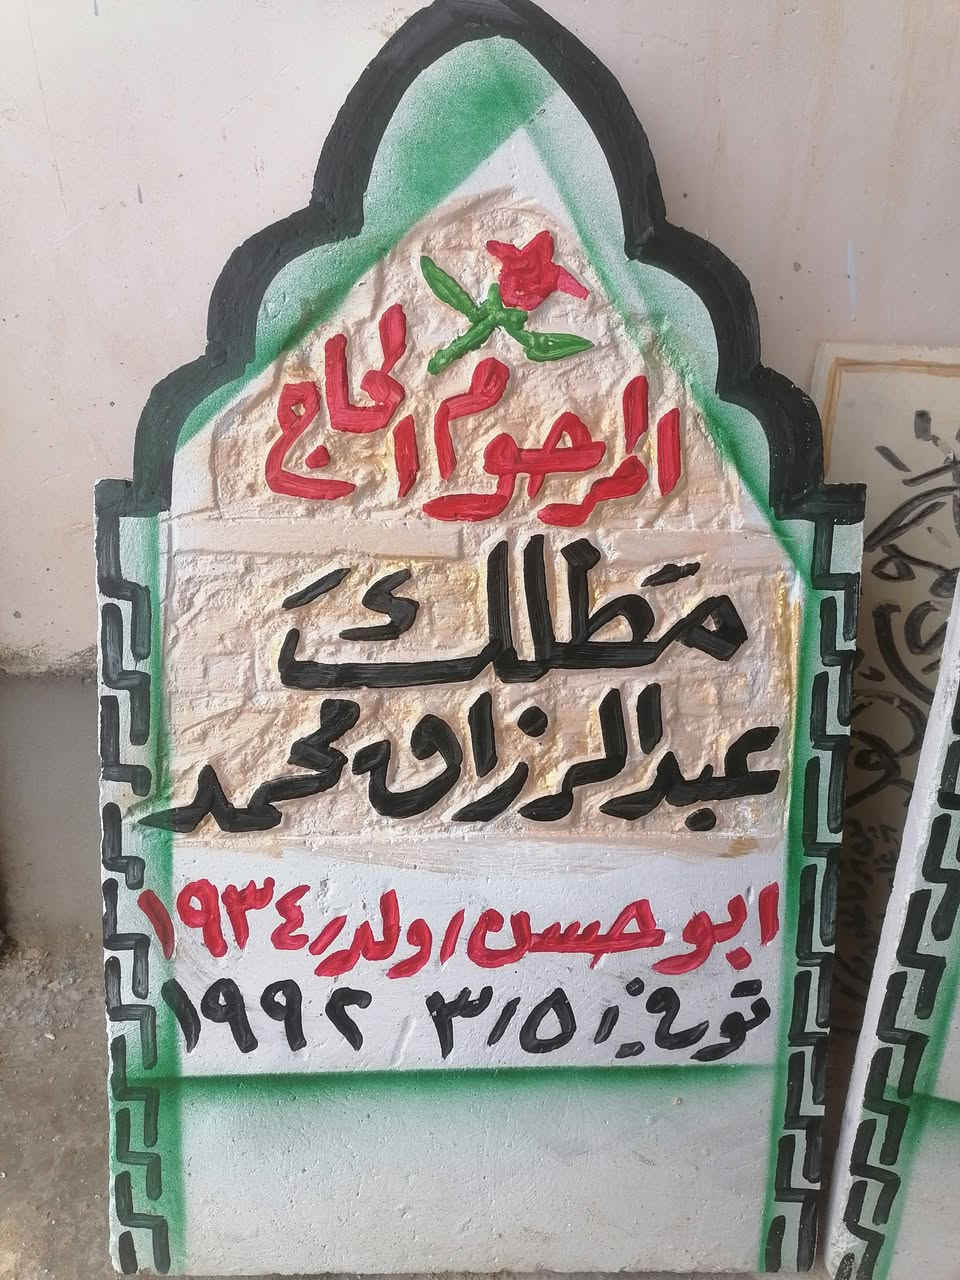 المرحوم الحاج
مطلك
عبد الرزاق محمد
ابو حسن / ولد / ١٩٣٤
توفي / ٣/٥ ١٩٩٢